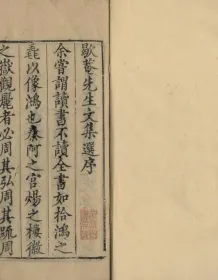 歇菴先生文集選序
余嘗謂讀書不讀全書如拾鴻之
毳以像鴻也秦阿之宮煬之棲徹
之嶽觀龐者必周其弘周其䟽周